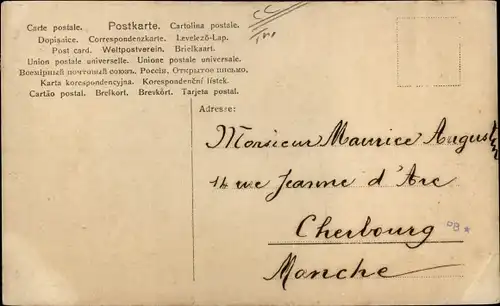 Carte postale. Postkarte. Cartolina postale.
Dopisnice. Correspondenzkarte. Levelező-Lap.
Post card. Weltpostverein. Briefkaart.
Union postale universelle. Unione postale universale.
Всемірный почтовый союзъ. Россія, Открытое письмо.
Karta korespondencyjna. Korespondenční lístek.
Cartão postal. Brefkort. Brevkort. Tarjeta postal.
Adresse:
Monsieur Maurice
14 rue Jeanne d'Arc
Cherbourg
Manche